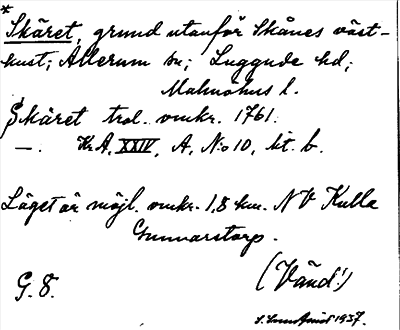 *
Skäret, grund utanför Skånes väst-
kust; Allerum sn; Luggude hd;
Malmöhus l.
Skäret trol. omkr. 1761.
—. Kr.A. XXIV, A, N:o 10, lit. b.
Läget är möjl. omkr. 1,8 km. NV Kulla
Gunnarstorp.
(Vänd!)
G. 8.
1937.